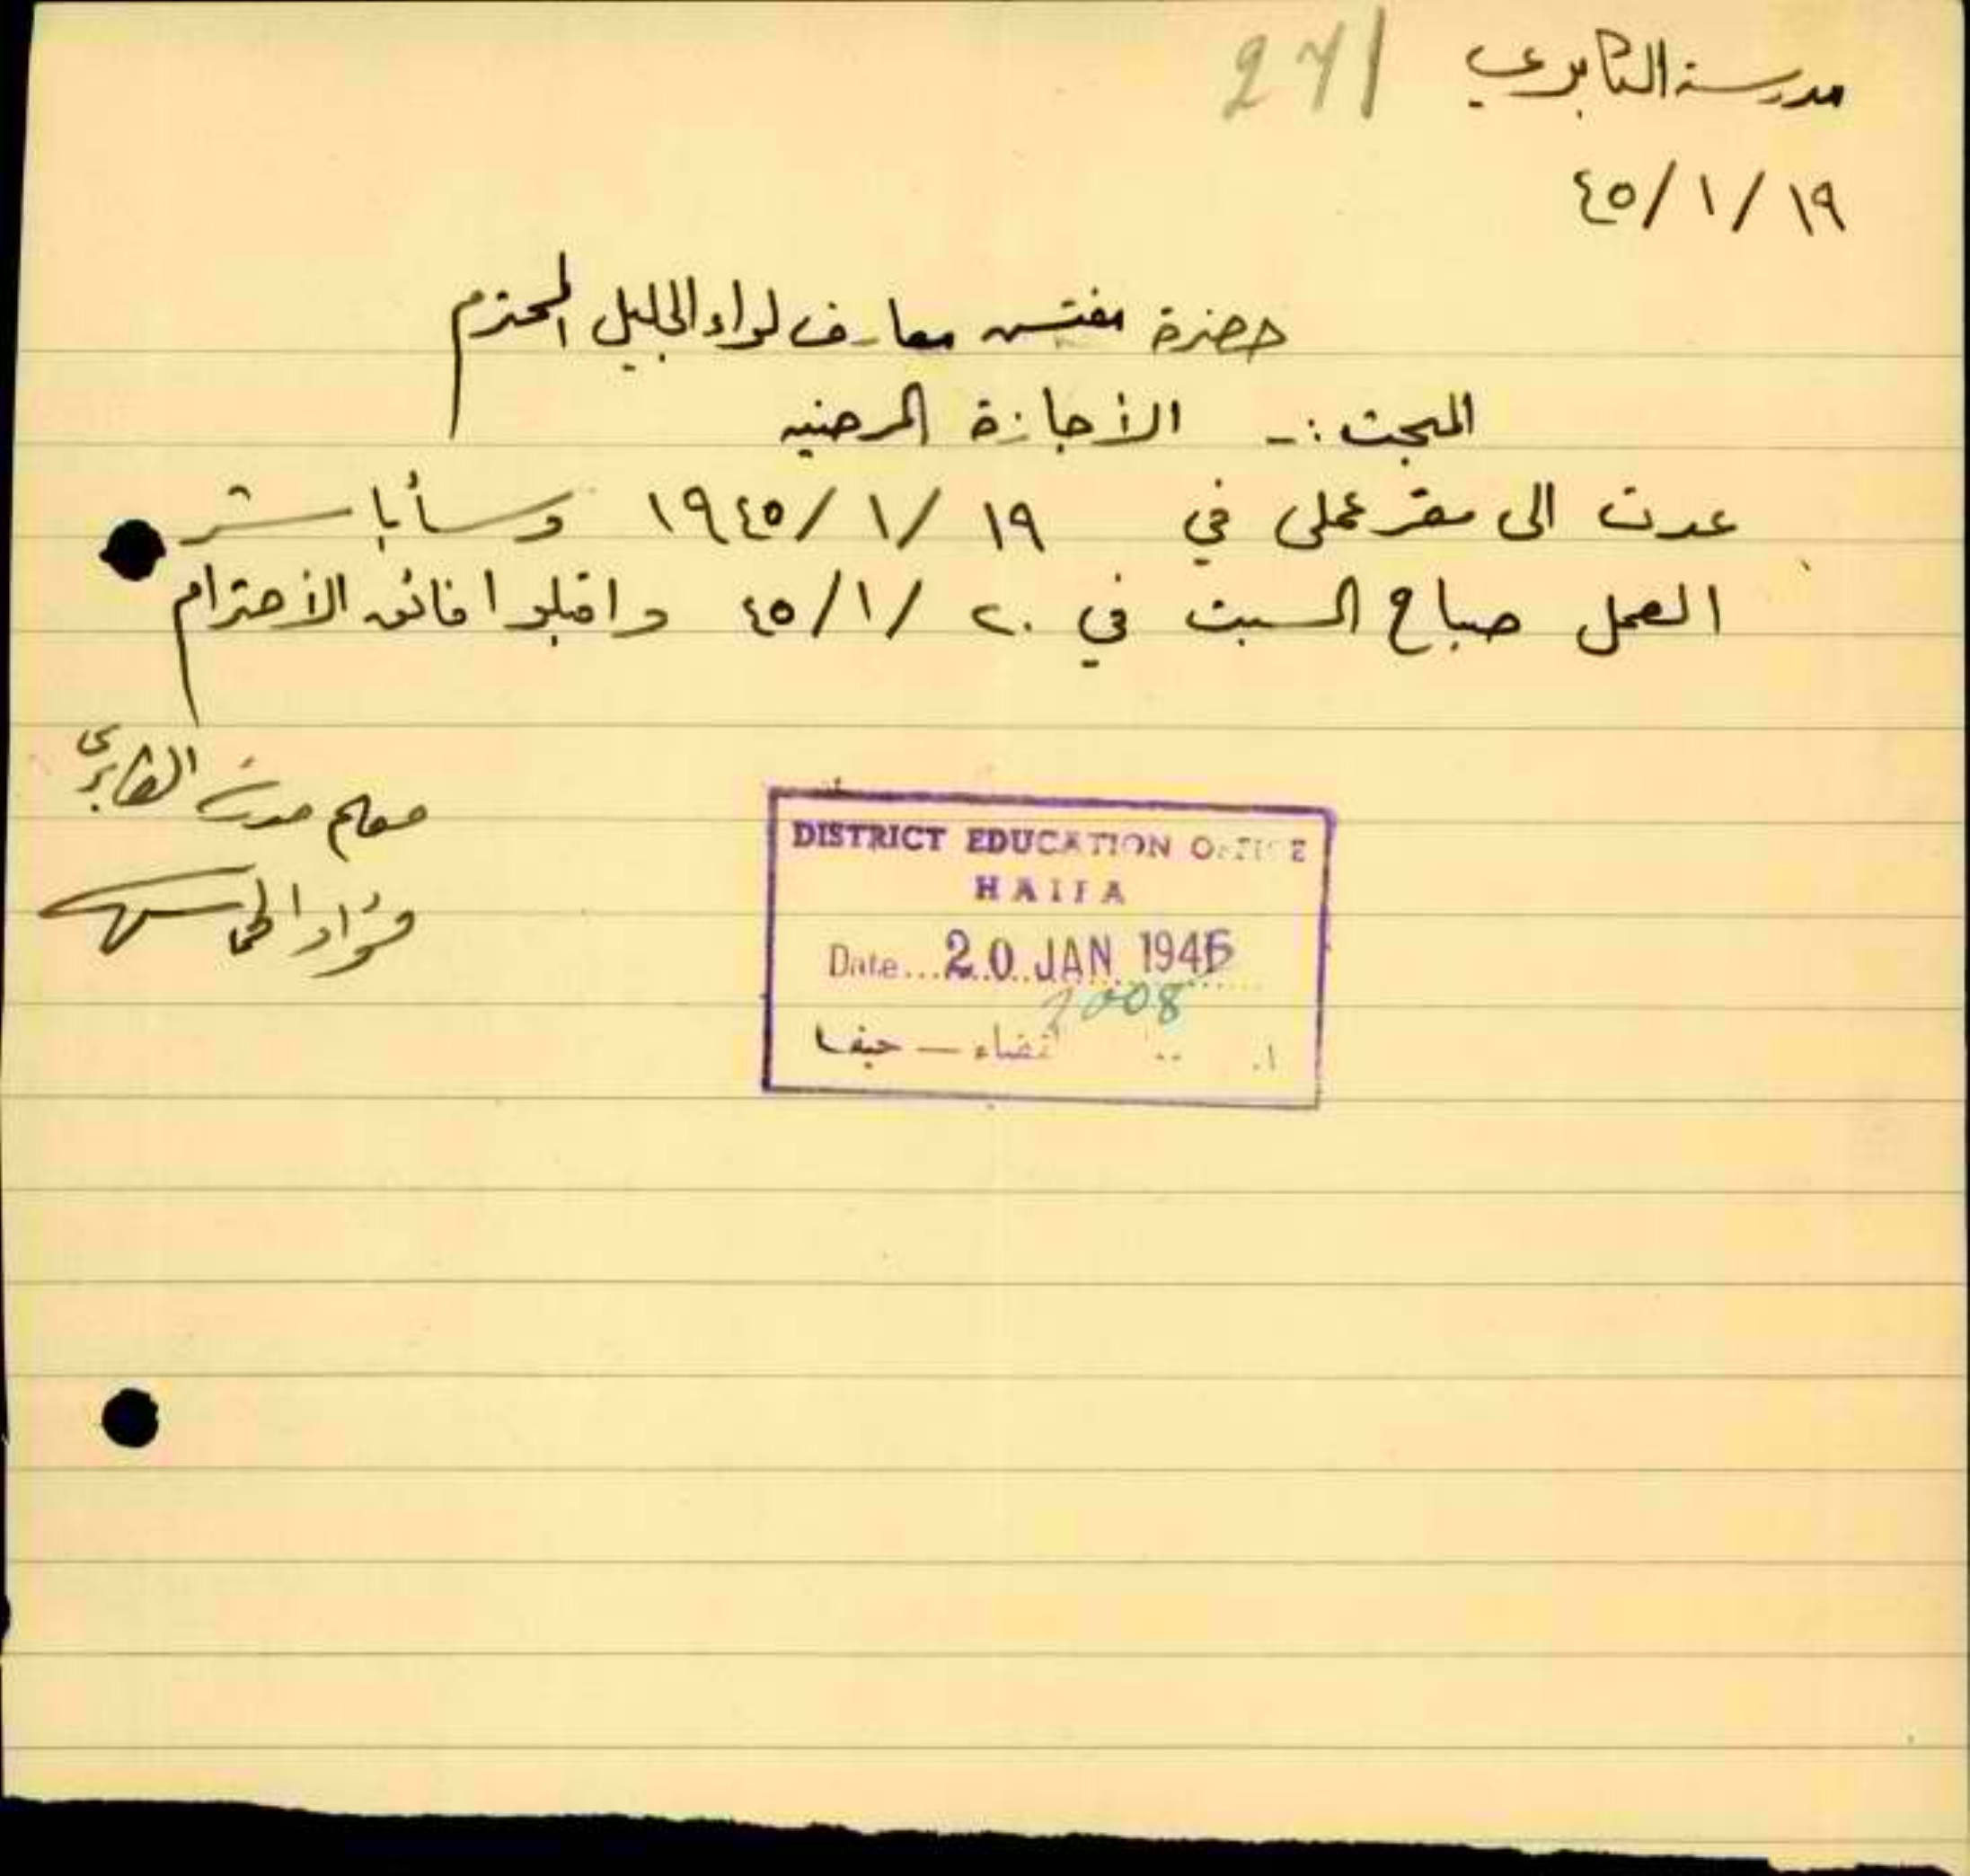 مدرسة الكابري
271
٤٥/١/١٩
حضرة مفتش معارف لواء الجليل المحترم
المبحث :- الأجازة المرضيه
عدت الى مقر عملي في ١٩٤٥/١/١٩ وسأباشر
العمل صباح السبت في ٤٥/١/٢٠ واقبلوا فائق الأحترام
معلم مدرسة الكابري
فؤاد
DISTRICT EDUCATION OFFICE
HAIFA
Date... 20 JAN 1945
2008
قضاء — حيفا